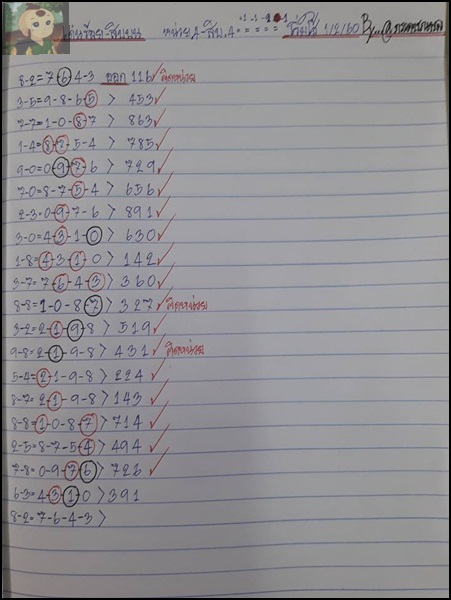 เด่นร้อย-สิบบน หน่วย4-สิบ.4 1/2/60 By
8-2=7-6-4-3 ออก 116✓ติดหน่วย
3-5=9-8-6-5 > 453✓
7-7=1-0-8-7 > 863✓
1-4=8-7-5-4 > 785✓
9-0=0-9-7-6 > 729✓
7-0=8-7-5-4 > 656✓
2-3=0-9-7-6 > 891✓
3-0=4-3-1-0 > 630✓
1-8=4-3-1-0 > 142✓
3-7=7-6-4-3 > 360✓
8-8=1-0-8-7 > 327✓ติดหน่วย
3-2=2-1-9-8 > 519✓
9-8=2-1-9-8 > 431✓ติดหน่วย
5-4=2-1-9-8 > 224✓
8-7=2-1-9-8 > 143✓
8-8=1-0-8-7 > 714✓
2-5=8-7-5-4 > 494✓
7-8=0-9-7-6 > 726✓
6-3=4-3-1-0 > 391
8-2=7-6-4-3 >